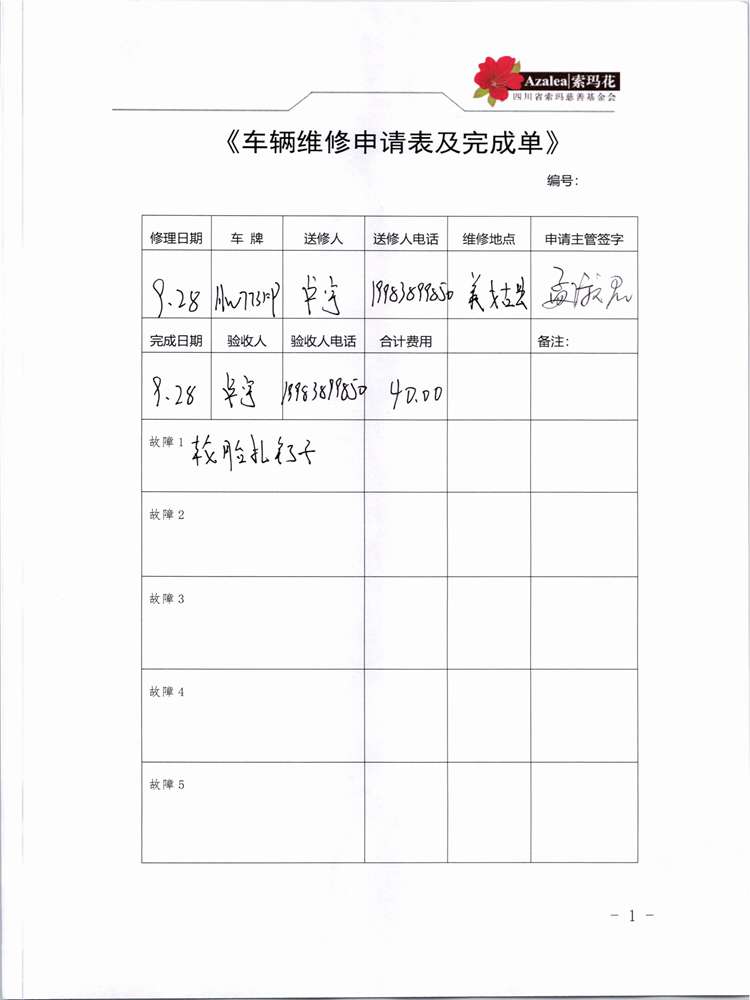 Azalea|索玛花
四川省索玛慈善基金会
《车辆维修申请表及完成单》
编号：
修理日期 车 牌 送修人 送修人电话 维修地点 申请主管签字
9.28 卓宇 19983899850 美姑县
完成日期 验收人 验收人电话 合计费用 备注：
9.28 卓宇 19983899850 40.00
故障 1 轮胎扎钉子
故障 2
故障 3
故障 4
故障 5
- 1 -